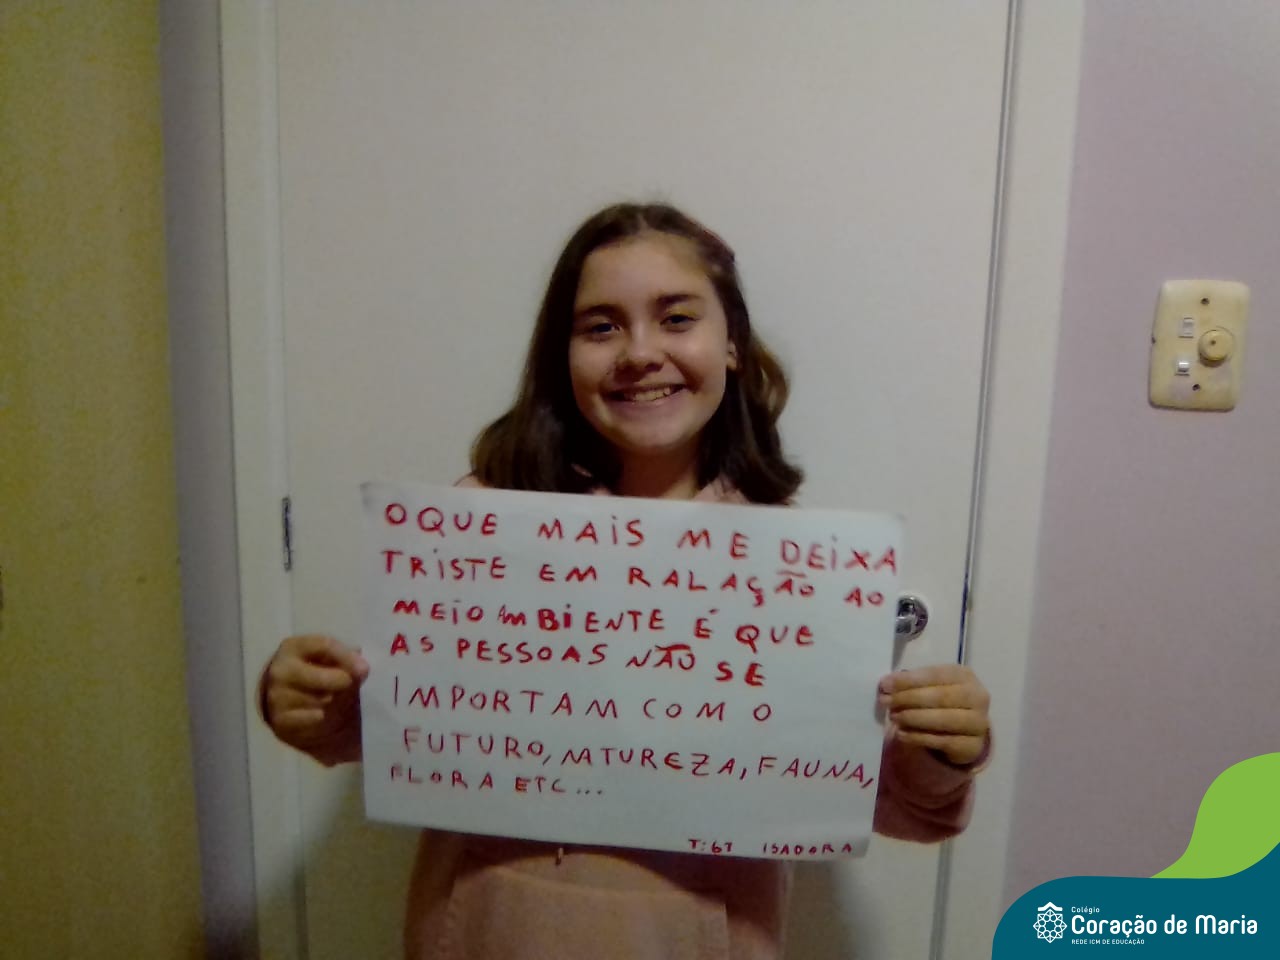 OQUE MAIS ME DEIXA
TRISTE EM RALAÇÃO AO
MEIO AMBIENTE É QUE
AS PESSOAS NÃO SE
IMPORTAM COM O
FUTURO, NTUREZA, FAUNA,
FLORA ETC...
T:67 ISADORA
Colégio
Coração de Maria
REDE ICM DE EDUCAÇÃO